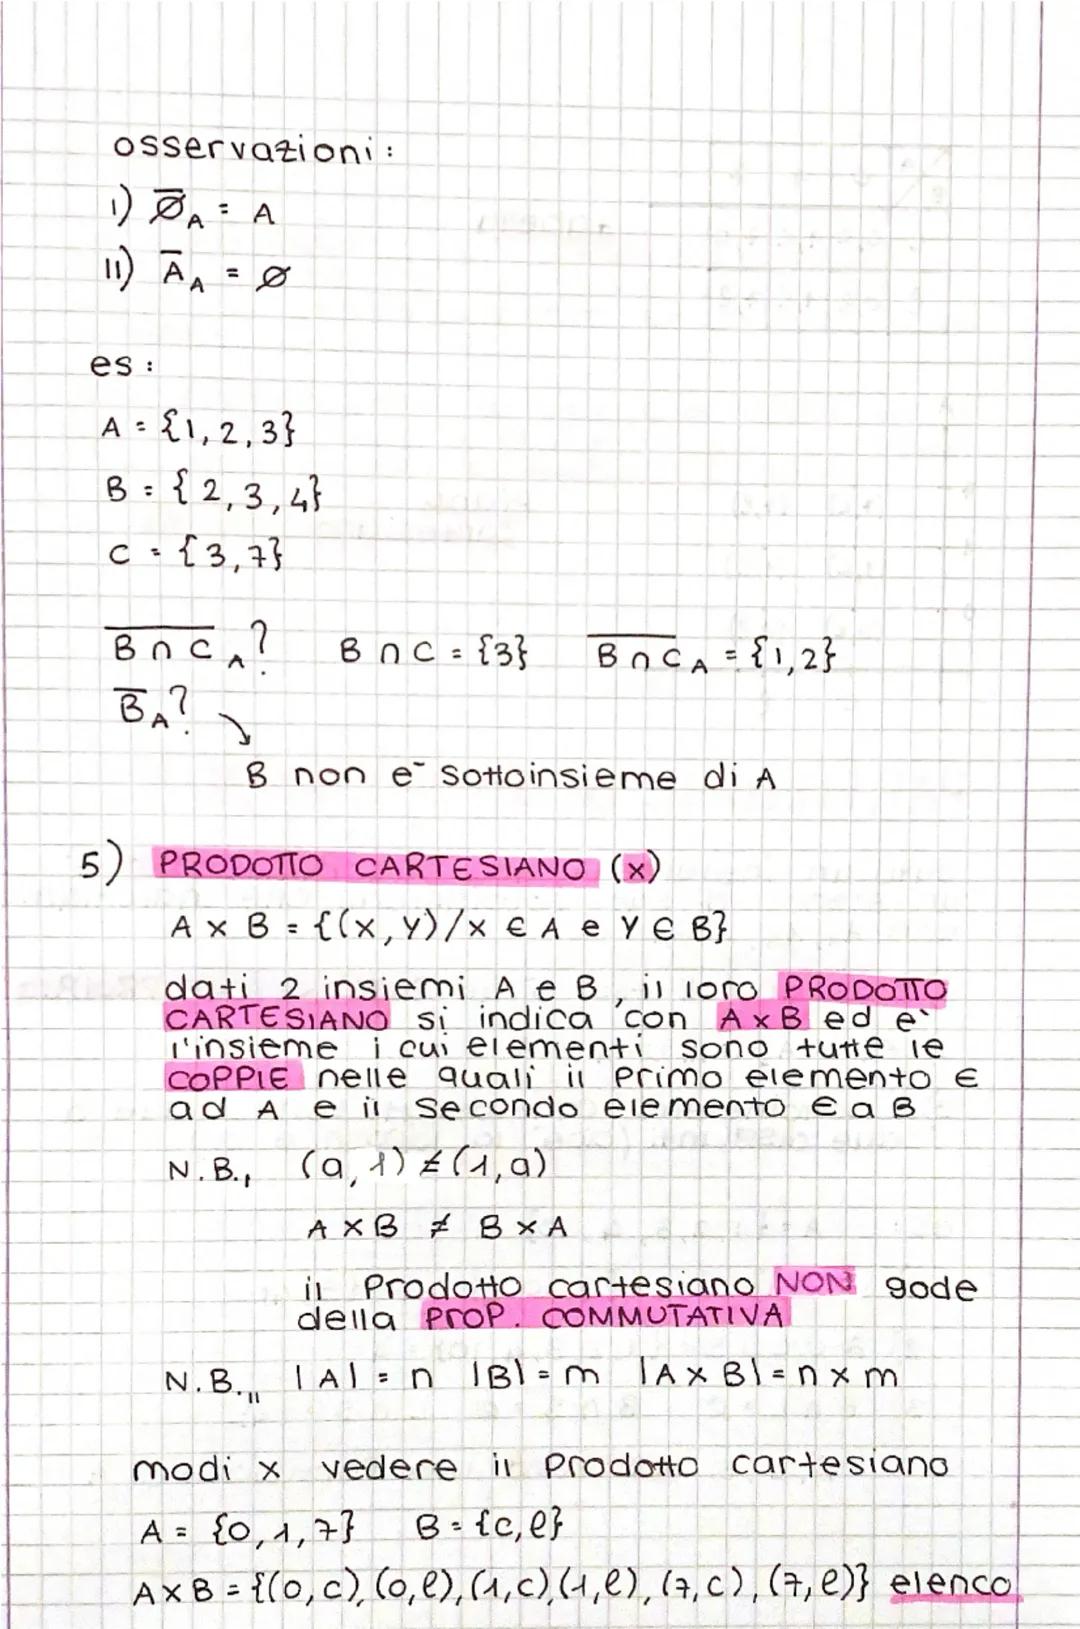 osservazioni:
I) ∅̅_A = A
II) A̅_A = ∅
es:
A = {1,2,3}
B = {2,3,4}
C = {3,7}
B∩C̅_A? B∩C = {3} B∩C̅_A = {1,2}
B̅_A?
B non è sottoinsieme di A
5) PRODOTTO CARTESIANO (x)
A x B = {(x,y)/x ∈ A e y ∈ B}
dati 2 insiemi A e B, il loro PRODOTTO
CARTESIANO si indica con AxB ed è
l'insieme i cui elementi sono tutte le
COPPIE nelle quali il primo elemento ∈
ad A e il secondo elemento ∈ a B
N.B.I (a,1) ≠ (1,a)
AxB ≠ BxA
il prodotto cartesiano NON gode
della PROP. COMMUTATIVA
N.B.II |A| = n |B| = m |AxB| = n x m
modi x vedere il prodotto cartesiano
A = {0,1,7} B = {c,e}
AxB = {(0,c),(0,e),(1,c),(1,e),(7,c),(7,e)} elenco